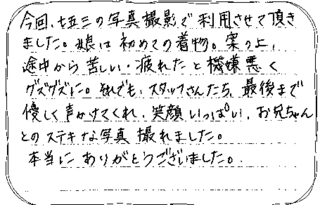 今回、七五三の写真撮影で利用させて頂き
ました。娘は初めての着物。案の上、
途中から苦しい・疲れたと機嫌悪く
グズグズに。それでも、スタッフさんたち、最後まで
優しく声かけてくれ、笑顔いっぱい、お兄ちゃん
とのステキな写真撮れました。
本当にありがとうございました。